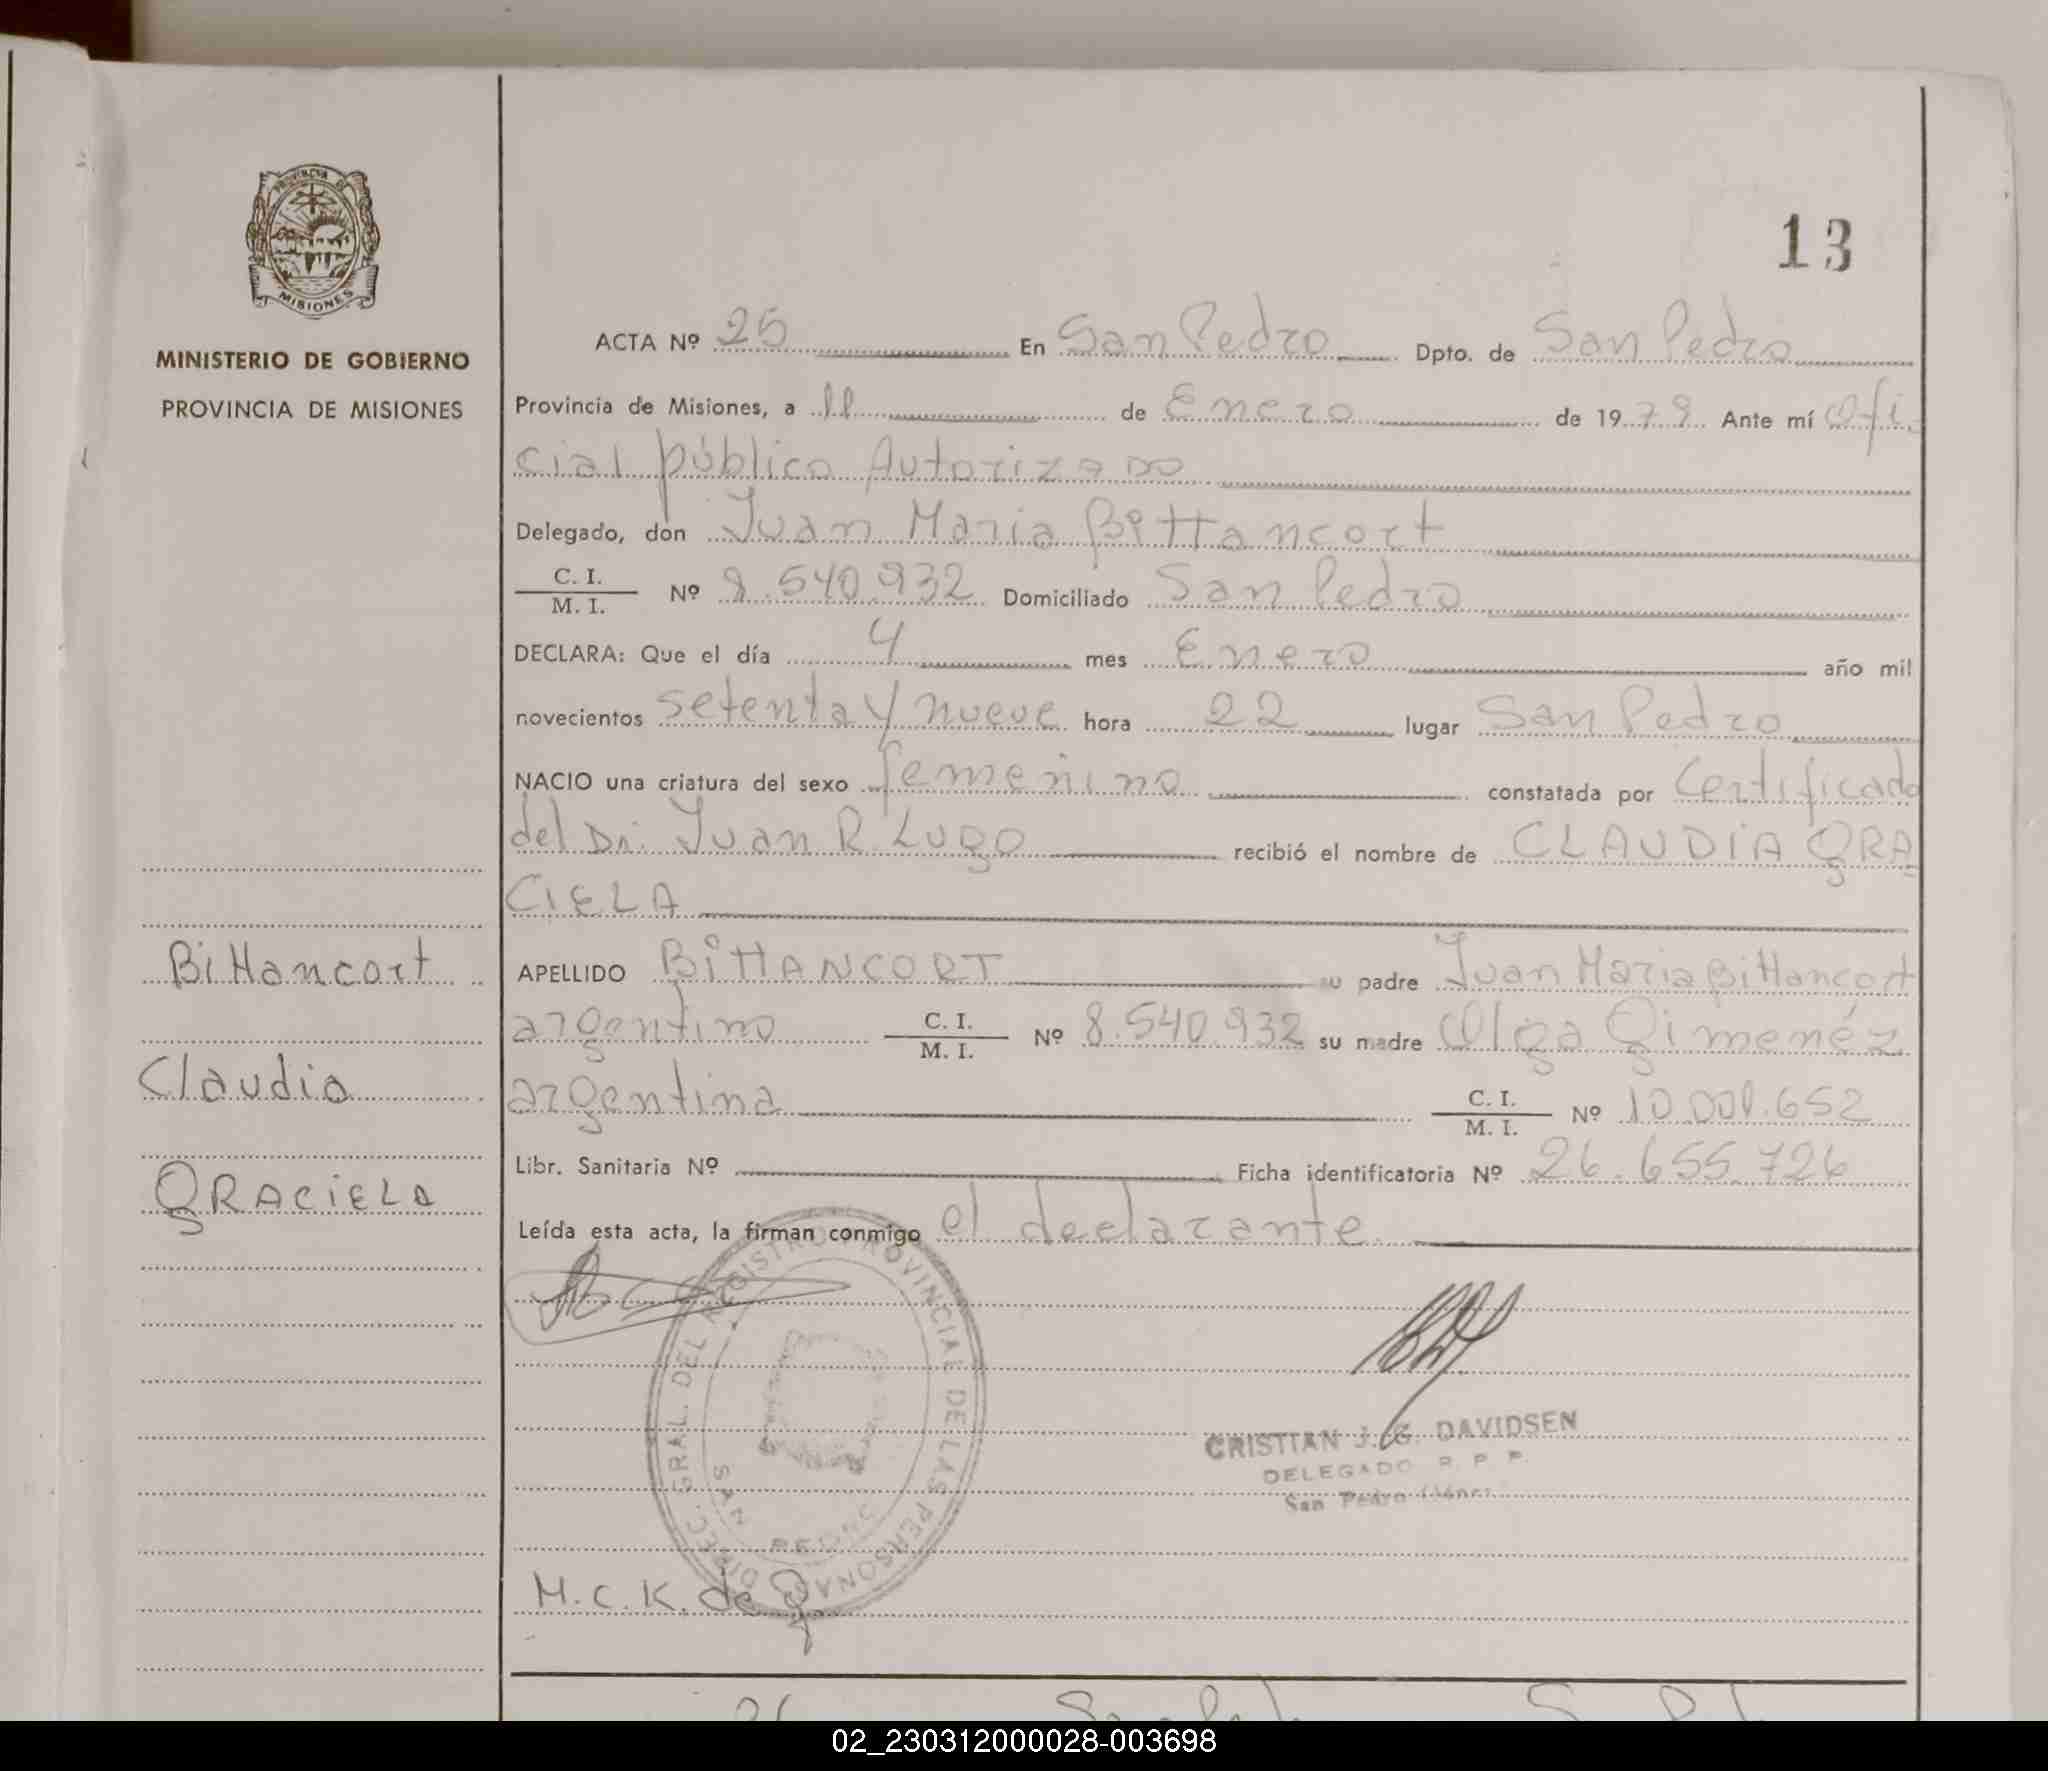 PROVINCIA DE
MISIONES
MINISTERIO DE GOBIERNO
PROVINCIA DE MISIONES
Bittancort
Claudia
GRACIELA
13
ACTA Nº 25 En San Pedro Dpto. de San Pedro
Provincia de Misiones, a 11 de Enero de 1979 Ante mí Ofi-
cial público Autorizado
Delegado, don Juan Maria Bittancort
C. I. / M. I. Nº 8.540.932 Domiciliado San Pedro
DECLARA: Que el día 4 mes Enero año mil
novecientos setenta y nueve hora 22 lugar San Pedro
NACIO una criatura del sexo femenino constatada por Certificado
del Dr. Juan R. Lugo recibió el nombre de CLAUDIA GRA-
CIELA
APELLIDO BITTANCORT su padre Juan Maria Bittancort
argentino C. I. / M. I. Nº 8.540.932 su madre Olga Gimenéz
argentina C. I. / M. I. Nº 10.001.652
Libr. Sanitaria Nº Ficha identificatoria Nº 26.655.726
Leída esta acta, la firman conmigo el declarante.
DIREC. GRAL. DEL REGISTRO PROVINCIAL DE LAS PERSONAS
SAN PEDRO
CRISTIAN J. G. DAVIDSEN
DELEGADO R. P. P.
San Pedro
M.C.K. de G
02_230312000028-003698